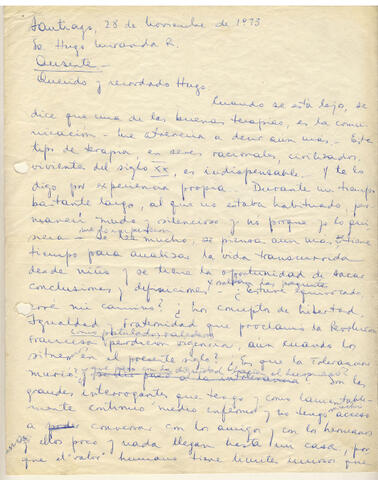 Santiago, 28 de Noviembre de 1973
Sr. Hugo Miranda R.
Presente _
Querido y recordado Hugo.
Cuando se está lejos, se
dice que una de las buenas terapias, es la comu-
nicación - me atrevería a decir aun mas - Este
tipo de terapia en seres racionales, civilizados,
vivientes del siglo XX, es indispensable. Y te lo
digo por experiencia propia. Durante un tiempo
bastante largo, al que no estaba habituado, per-
manecí mudo y silencioso y no porque yo lo qui-
siera - Se lee mucho, se piensa aun mas y se tiene
tiempo para analizar la vida transcurrida
desde niño y se tiene la oportunidad de sacar
conclusiones y
¿estaré equivocado
erré mi camino? ¿los conceptos de libertad,
Igualdad y Fraternidad que proclamó la Revolución
Francesa perdieron vigencia, aun cuando los
sitúen en el presente siglo? ¿Es que la Tolerancia
murió? ¿
Son las
grandes interrogantes que tengo y como lamentable-
mente continúo medio enfermo y no tengo mucho
acceso a conversar con los amigos, con los hermanos
y ellos poco y nada llegan hasta mi casa, por-
que el "valor" humano tiene límites